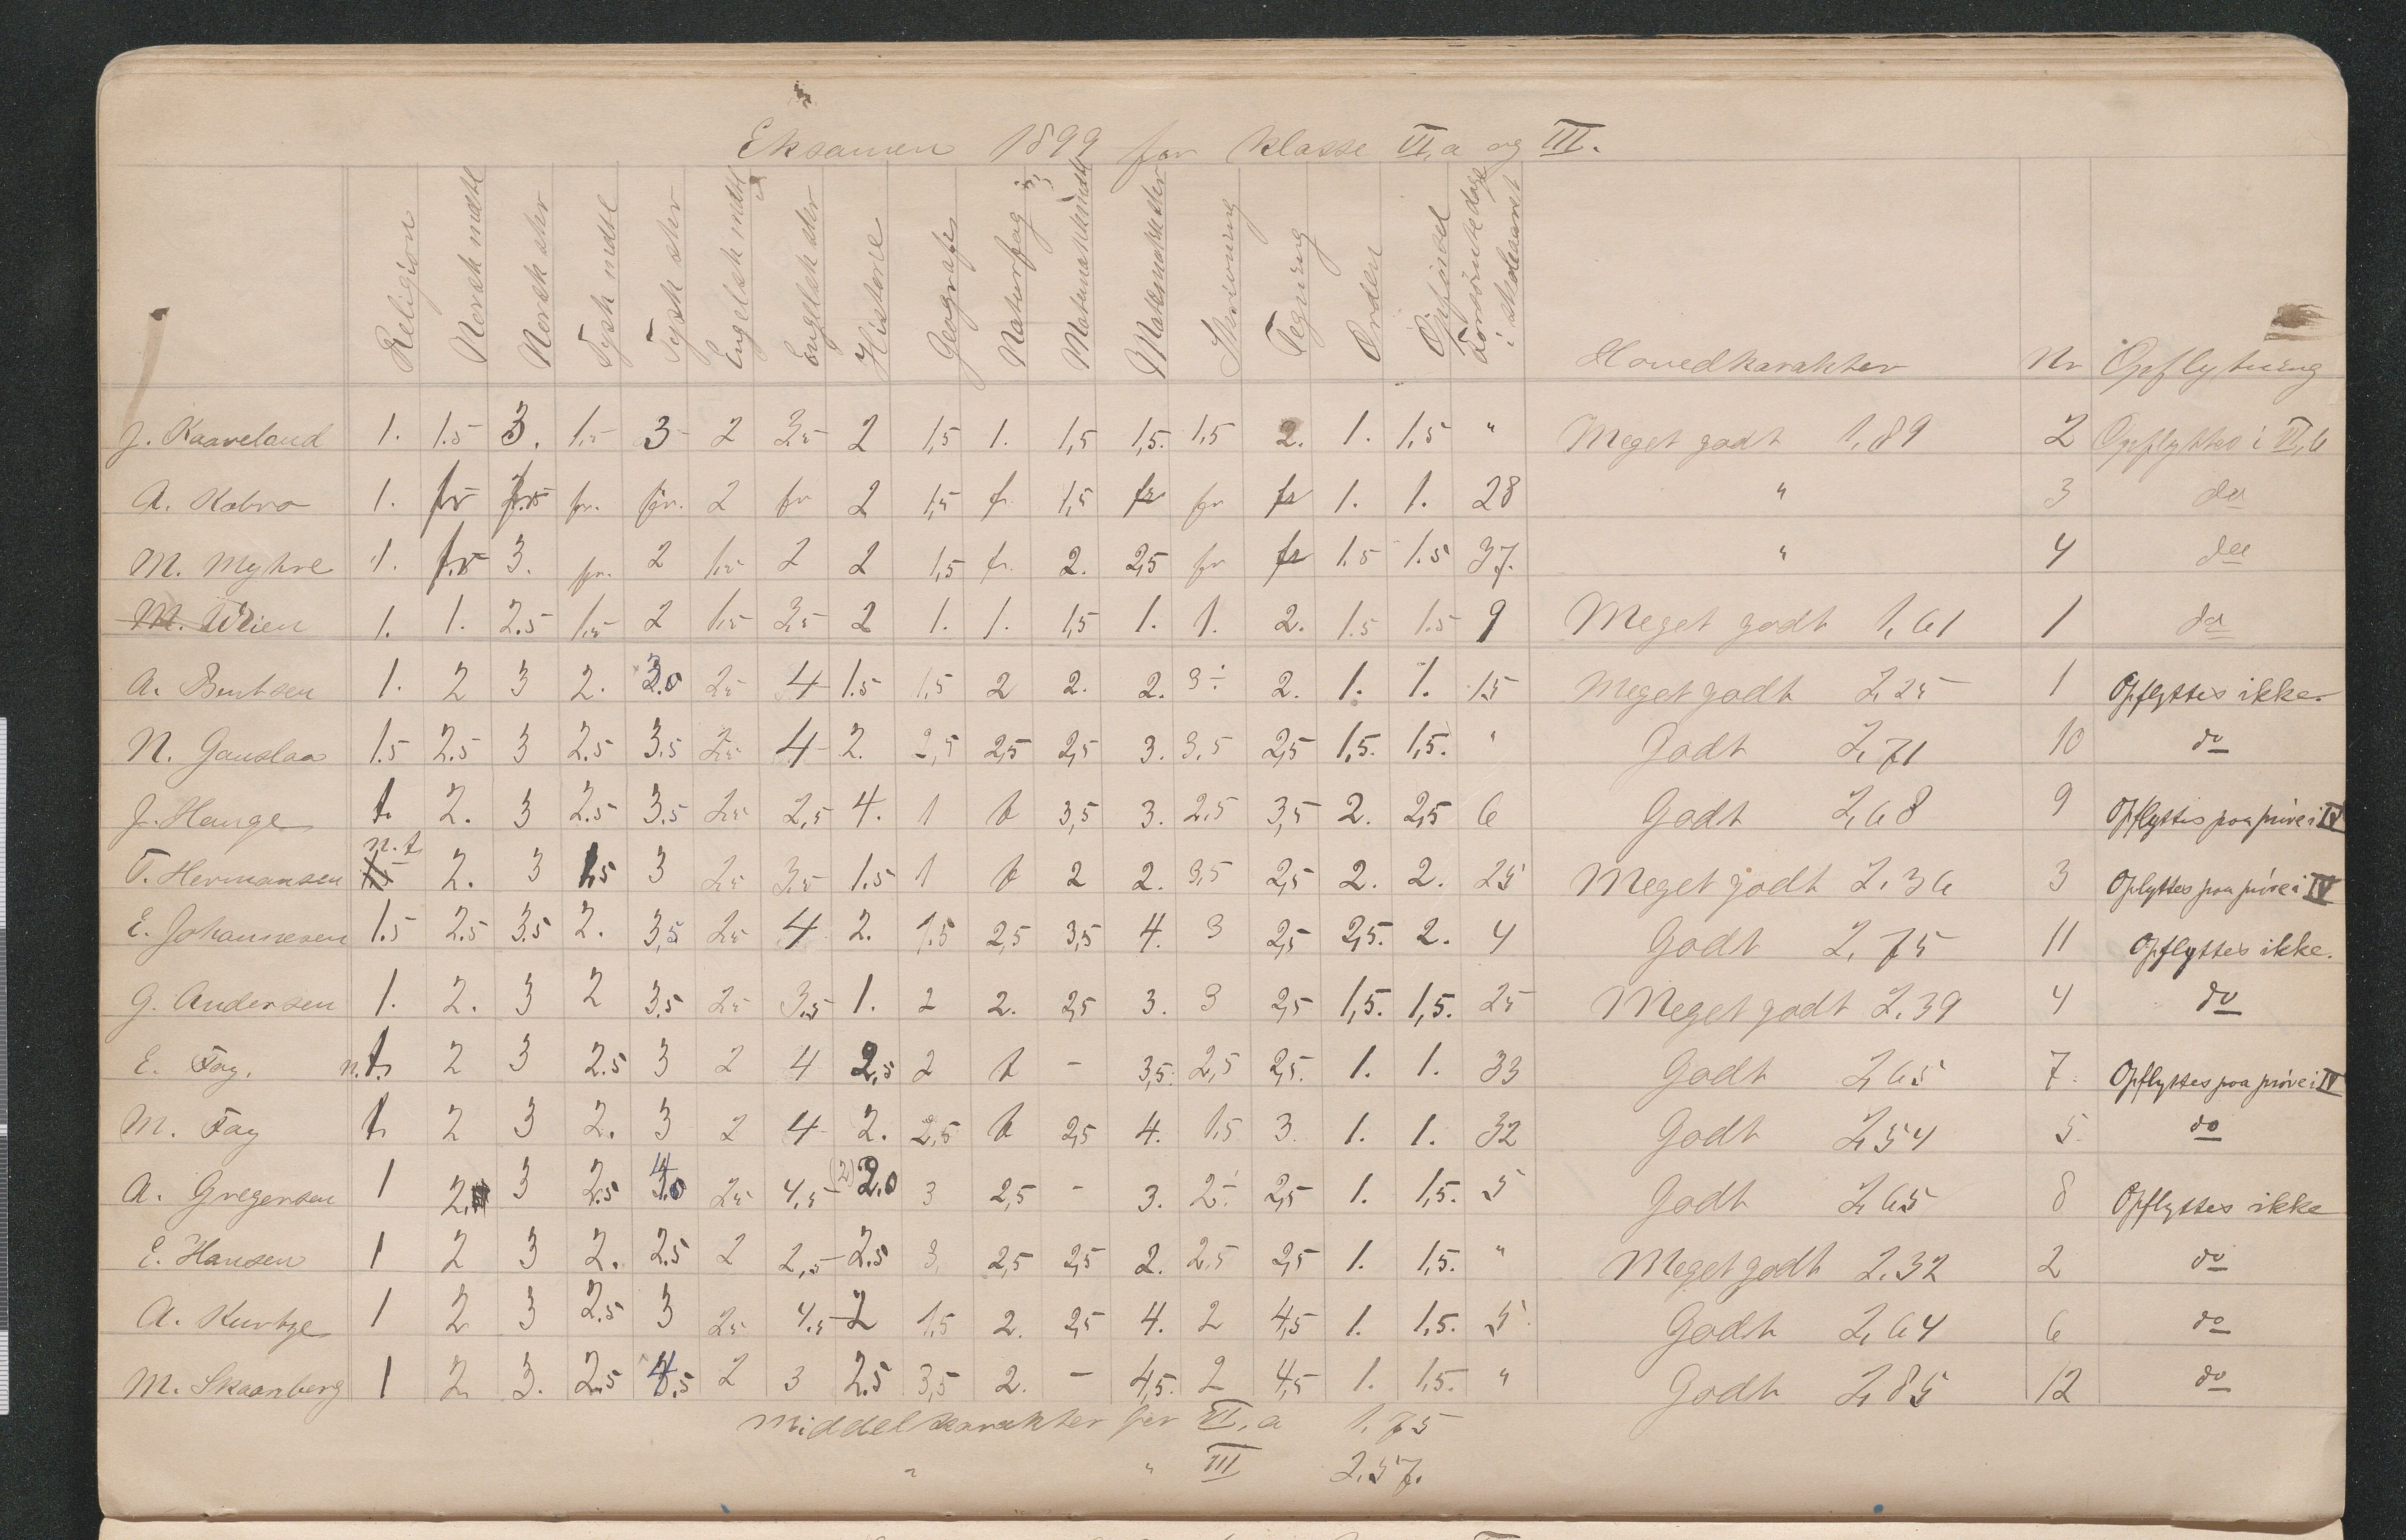 Eksamen 1899 for klasse VI,a og III.
Religion Norsk mdtl Norsk skr Tysk mdtl Tysk skr Engelsk mdtl Engelsk skr Historie Geografi Naturfag Matematik mdtl Matematik skr Skrivning Tegning Orden Opførsel Forsømte dage i skoleaaret Hovedkarakter Nr Opflytning
J. Kaaveland 1. 1.5 3. 1.5 3 2 3.5 2 1,5 1. 1,5 1,5. 1,5 2. 1. 1,5 " Meget godt 1,89 2 Opflyttes i VI,b
A. Kobro 1. fr fr. fr. 2 fr 2 1,5 fr. 1,5 fr fr fr 1. 1. 28 " 3 do
M. Myhre 1. 3. fr. 2 1.5 2 2 1,5 fr. 2. 2,5 fr fr 1.5 1.5 37. " 4 do
M. Wrien 1. 1. 2.5 1.5 2 1.5 3.5 2 1. 1. 1,5 1. 1. 2. 1.5 1.5 9 Meget godt 1,61 1 do
A. Berntsen 1. 2 3 2. 3.0 2.5 4 1.5 1,5 2 2. 2. 3÷ 2. 1. 1. 15 Meget godt 2,25 1 Opflyttes ikke.
N. Gauslaa 1.5 2.5 3 2.5 3.5 2.5 4 2. 2,5 2,5 2,5 3. 3.5 2,5 1,5. 1,5. " Godt 2,71 10 do
J. Hauge t. 2. 3 2.5 3.5 2.5 2,5 4. 1 t 3,5 3. 2.5 3,5 2. 2,5 6 Godt 2,68 9 Opflyttes paa prøve i IV
T. Hermansen n.t 2. 3 1.5 3 2.5 3.5 1.5 1 t 2 2. 3,5 2,5 2. 2. 25 Meget godt 2.36 3 Oplyttes paa prøve i IV
E. Johannesen 1.5 2.5 3.5 2. 3,5 2.5 4 2. 1.5 2,5 3,5 4. 3 2,5 2,5. 2. 4 Godt 2,75 11 Opflyttes ikke.
G. Andersen 1. 2. 3 2 3.5 2.5 3.5 1. 2 2. 2,5 3. 3 2,5 1,5. 1,5. 25 Meget godt 2.39 4 do
E. Fay. n.t. 2 3 2.5 3 2 4 2,5 2 t - 3,5. 2,5 2,5. 1. 1. 33 Godt 2,65 7. Opflyttes paa prøve i IV
M. Fay t. 2 3 2. 3 2 4 2. 2,5 t 2,5 4. 1,5 3. 1. 1. 32 Godt 2,54 5. do
A. Gregersen 1 2. 3 2.5 4.0 2.5 4.5 (2) 2.0 3 2,5 - 3. 2÷ 2,5 1. 1,5. 5 Godt 2,65 8 Opflyttes ikke
E. Hansen 1 2 3 2. 2.5 2 2,5 2.5 3, 2,5 2,5 2. 2.5 2,5 1. 1,5. " Meget godt 2.32 2 do
A. Kurtze 1 2 3 2.5 3 2.5 4.5 2 1,5 2. 2,5 4. 2 4,5 1. 1,5. 5 Godt 2,64 6 do
M. Skaanberg 1 2 3. 2.5 4.5 2 3 2.5 3,5 2. - 4,5. 2 4,5 1. 1,5. " Godt 2,85 12 do
Middelkarakter for VI,a 1.75
" " III 2.57.